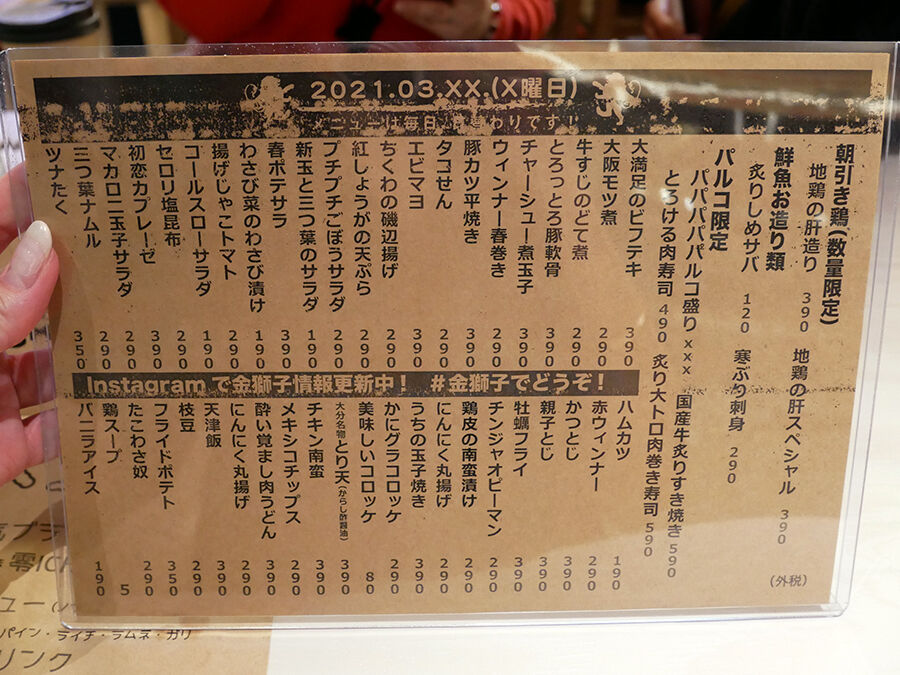 2021.03.XX.(X曜日)
メニューは毎日 替わりです!
朝引き鶏(数量限定)
地鶏の肝造り 390 地鶏の肝スペシャル 390
鮮魚お造り類
炙りしめサバ 120 寒ぶり刺身 290
パルコ限定
パパパパパルコ盛り xxx 国産牛炙りすき焼き 590
とろける肉寿司 490 炙り大トロ肉巻き寿司 590
大満足のビフテキ 390
大阪モツ煮 290
牛すじのどて煮 290
とろっとろ豚軟骨 390
チャーシュー煮玉子 390
ウィンナー春巻き 290
豚カツ平焼き 390
タコせん 290
エビマヨ 390
ちくわの磯辺揚げ 290
紅しょうがの天ぷら 290
プチプチごぼうサラダ 290
新玉と三つ葉のサラダ 190
春ポテサラ 390
わさび菜のわさび漬け 190
揚げじゃこトマト 290
コールスローサラダ 190
セロリ塩昆布 290
初恋カプレーゼ 390
マカロニ玉子サラダ 290
三つ葉ナムル 290
ツナたく 350
Instagramで金獅子情報更新中! #金獅子でどうぞ!
ハムカツ 190
赤ウィンナー 290
かつとじ 390
親子とじ 390
牡蠣フライ 390
チンジャオピーマン 290
鶏皮の南蛮漬け 290
にんにく丸揚げ 290
うちの玉子焼き 390
かにグラコロッケ 290
美味しいコロッケ 80
大分名物とり天(からし酢醤油) 390
チキン南蛮 390
メキシコチップス 290
酔い覚まし肉うどん 390
にんにく丸揚げ 290
天津飯 390
枝豆 290
フライドポテト 350
たこわさ奴 290
鶏スープ 5
バニラアイス 190
(外税)
パイン・ライチ・ラムネ・ガリ
リンク